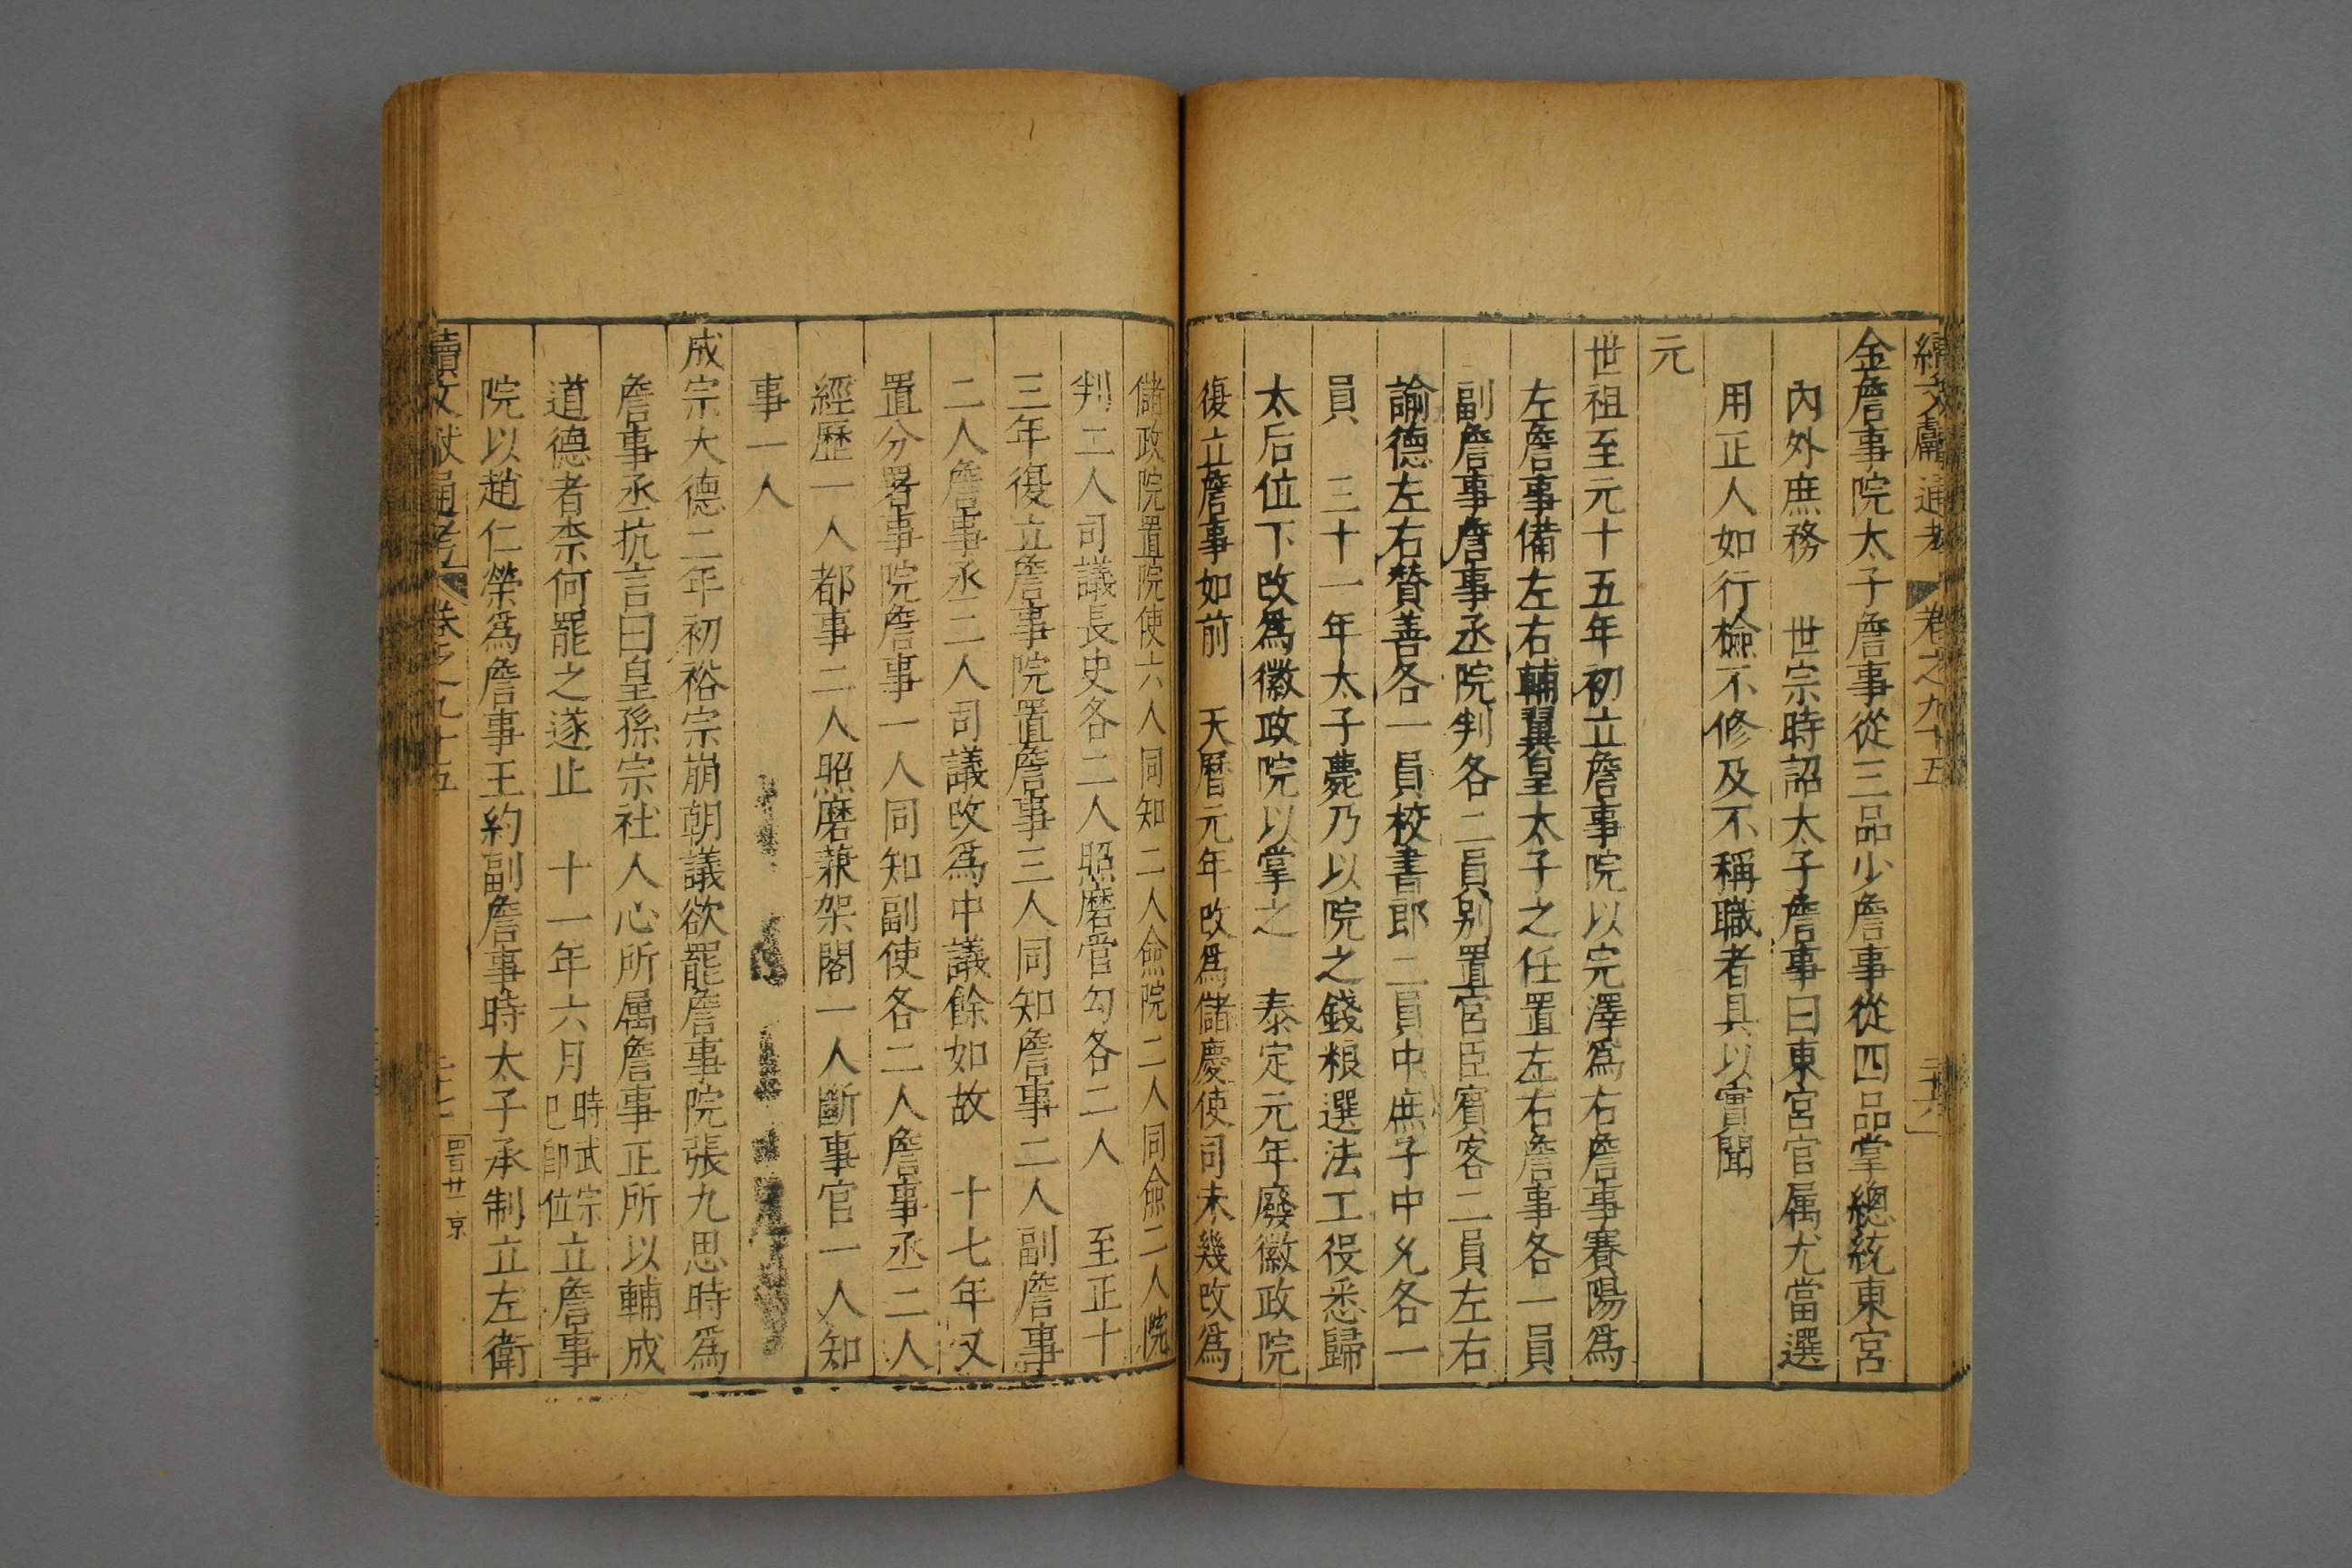 續文獻通考 卷之九十五
金詹事院太子詹事從三品少詹事從四品掌總統東宮
內外庶務 世宗時詔太子詹事曰東宮官属尤當選
用正人如行檢不修及不稱職者具以實聞
元
世祖至元十五年初立詹事院以完澤爲右詹事賽陽爲
左詹事備左右輔翼皇太子之任置左右詹事各一員
副詹事詹事丞院判各二員别置宮臣賓客二員左右
諭德左右賛善各一員校書郎二員中庶子中允各一
員 三十一年太子薨乃以院之錢粮選法工役悉歸
太后位下改爲徽政院以掌之 泰定元年廢徽政院
復立詹事如前 天曆元年改爲儲慶使司未幾改爲
儲政院置院使六人同知二人僉院二人同僉二人院
判二人司議長史各二人照磨管勾各二人 至正十
三年復立詹事院置詹事三人同知詹事二人副詹事
二人詹事丞二人司議改爲中議餘如故 十七年又
置分詹事院詹事一人同知副使各二人詹事丞二人
經歷一人都事二人照磨蒹架閣一人斷事官一人知
事一人
成宗大德二年初裕宗崩朝議欲罷詹事院張九思時爲
詹事丞抗言曰皇孫宗社人心所属詹事正所以輔成
道德者柰何罷之遂止 十一年六月時武宗已即位立詹事
院以趙仁榮爲詹事王約副詹事時太子承制立左衛
續文献通考 卷之九十五 二十七